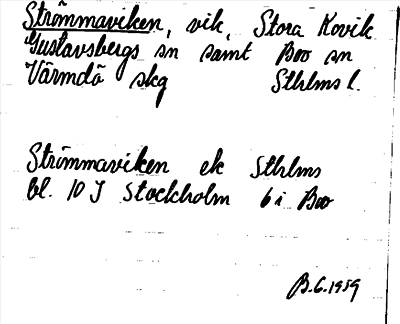 Strömmaviken, vik, Stora Kovik
Gustavsbergs sn samt Boo sn
Värmdö skg Sthlms l.
Strömmaviken ek Sthlms
bl. 10 J Stockholm 6 i Boo
B.G. 1959